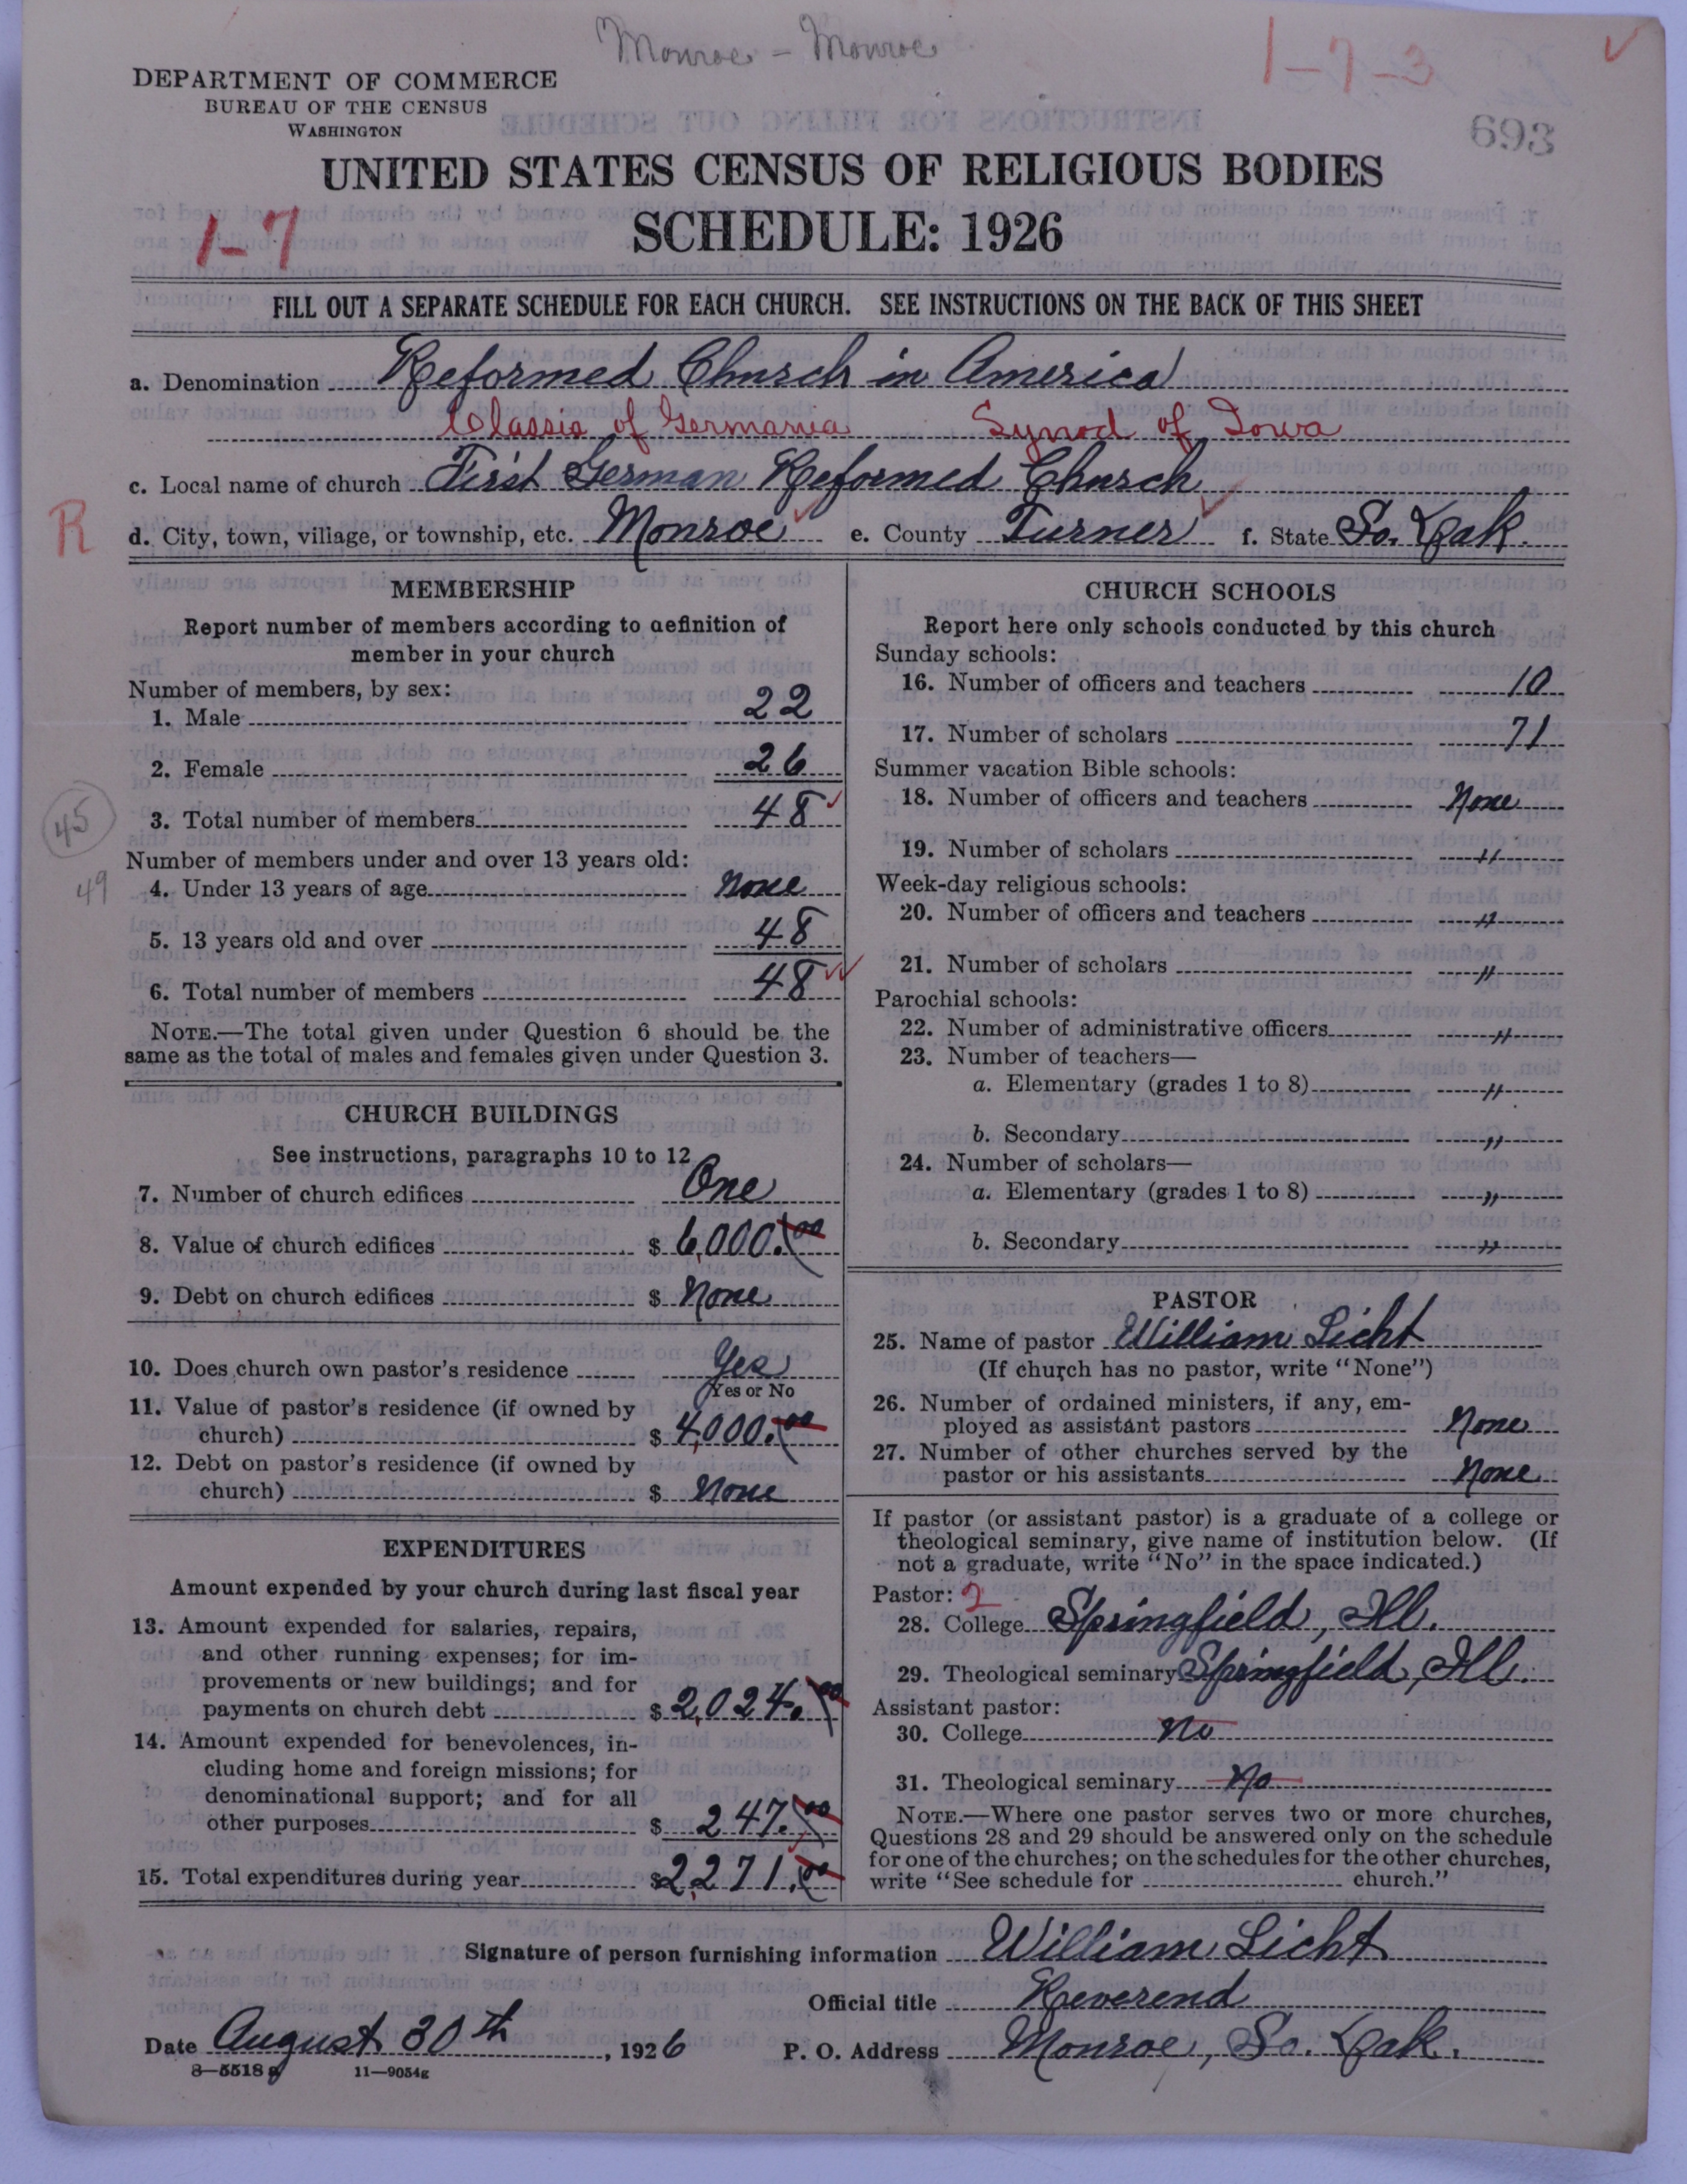 Monroe - Monroe
1-7-3
DEPARTMENT OF COMMERCE
BUREAU OF THE CENSUS
WASHINGTON
693
UNITED STATES CENSUS OF RELIGIOUS BODIES
SCHEDULE: 1926
1-7
FILL OUT A SEPARATE SCHEDULE FOR EACH CHURCH. SEE INSTRUCTIONS ON THE BACK OF THIS SHEET
a. Denomination Reformed Church in America
Classis of Germania Synod of Iowa
c. Local name of church First German Reformed Church
R
d. City, town, village, or township, etc. Monroe e. County Turner f. State So. Dak.
MEMBERSHIP
Report number of members according to definition of
member in your church
Number of members, by sex:
1. Male 22
2. Female 26
3. Total number of members 48
45
Number of members under and over 13 years old:
49
4. Under 13 years of age None
5. 13 years old and over 48
6. Total number of members 48
NOTE.—The total given under Question 6 should be the
same as the total of males and females given under Question 3.
CHURCH BUILDINGS
See instructions, paragraphs 10 to 12
7. Number of church edifices One
8. Value of church edifices $ 6,000.00
9. Debt on church edifices $ None
10. Does church own pastor's residence Yes
Yes or No
11. Value of pastor's residence (if owned by
church) $ 4,000.00
12. Debt on pastor's residence (if owned by
church) $ None
EXPENDITURES
Amount expended by your church during last fiscal year
13. Amount expended for salaries, repairs,
and other running expenses; for im-
provements or new buildings; and for
payments on church debt $ 2,024.00
14. Amount expended for benevolences, in-
cluding home and foreign missions; for
denominational support; and for all
other purposes $ 247.00
15. Total expenditures during year $ 2,271.00
CHURCH SCHOOLS
Report here only schools conducted by this church
Sunday schools:
16. Number of officers and teachers 10
17. Number of scholars 71
Summer vacation Bible schools:
18. Number of officers and teachers None
19. Number of scholars "
Week-day religious schools:
20. Number of officers and teachers "
21. Number of scholars "
Parochial schools:
22. Number of administrative officers "
23. Number of teachers—
a. Elementary (grades 1 to 8) "
b. Secondary "
24. Number of scholars—
a. Elementary (grades 1 to 8) "
b. Secondary "
PASTOR
25. Name of pastor William Licht
(If church has no pastor, write "None")
26. Number of ordained ministers, if any, em-
ployed as assistant pastors None
27. Number of other churches served by the
pastor or his assistants None
If pastor (or assistant pastor) is a graduate of a college or
theological seminary, give name of institution below. (If
not a graduate, write "No" in the space indicated.)
Pastor: 2
28. College Springfield, Ill.
29. Theological seminary Springfield, Ill.
Assistant pastor:
30. College No
31. Theological seminary No
NOTE.—Where one pastor serves two or more churches,
Questions 28 and 29 should be answered only on the schedule
for one of the churches; on the schedules for the other churches,
write "See schedule for church."
Signature of person furnishing information William Licht
Official title Reverend
Date August 30th, 1926 P. O. Address Monroe, So. Dak.
8—5518g 11—9054g